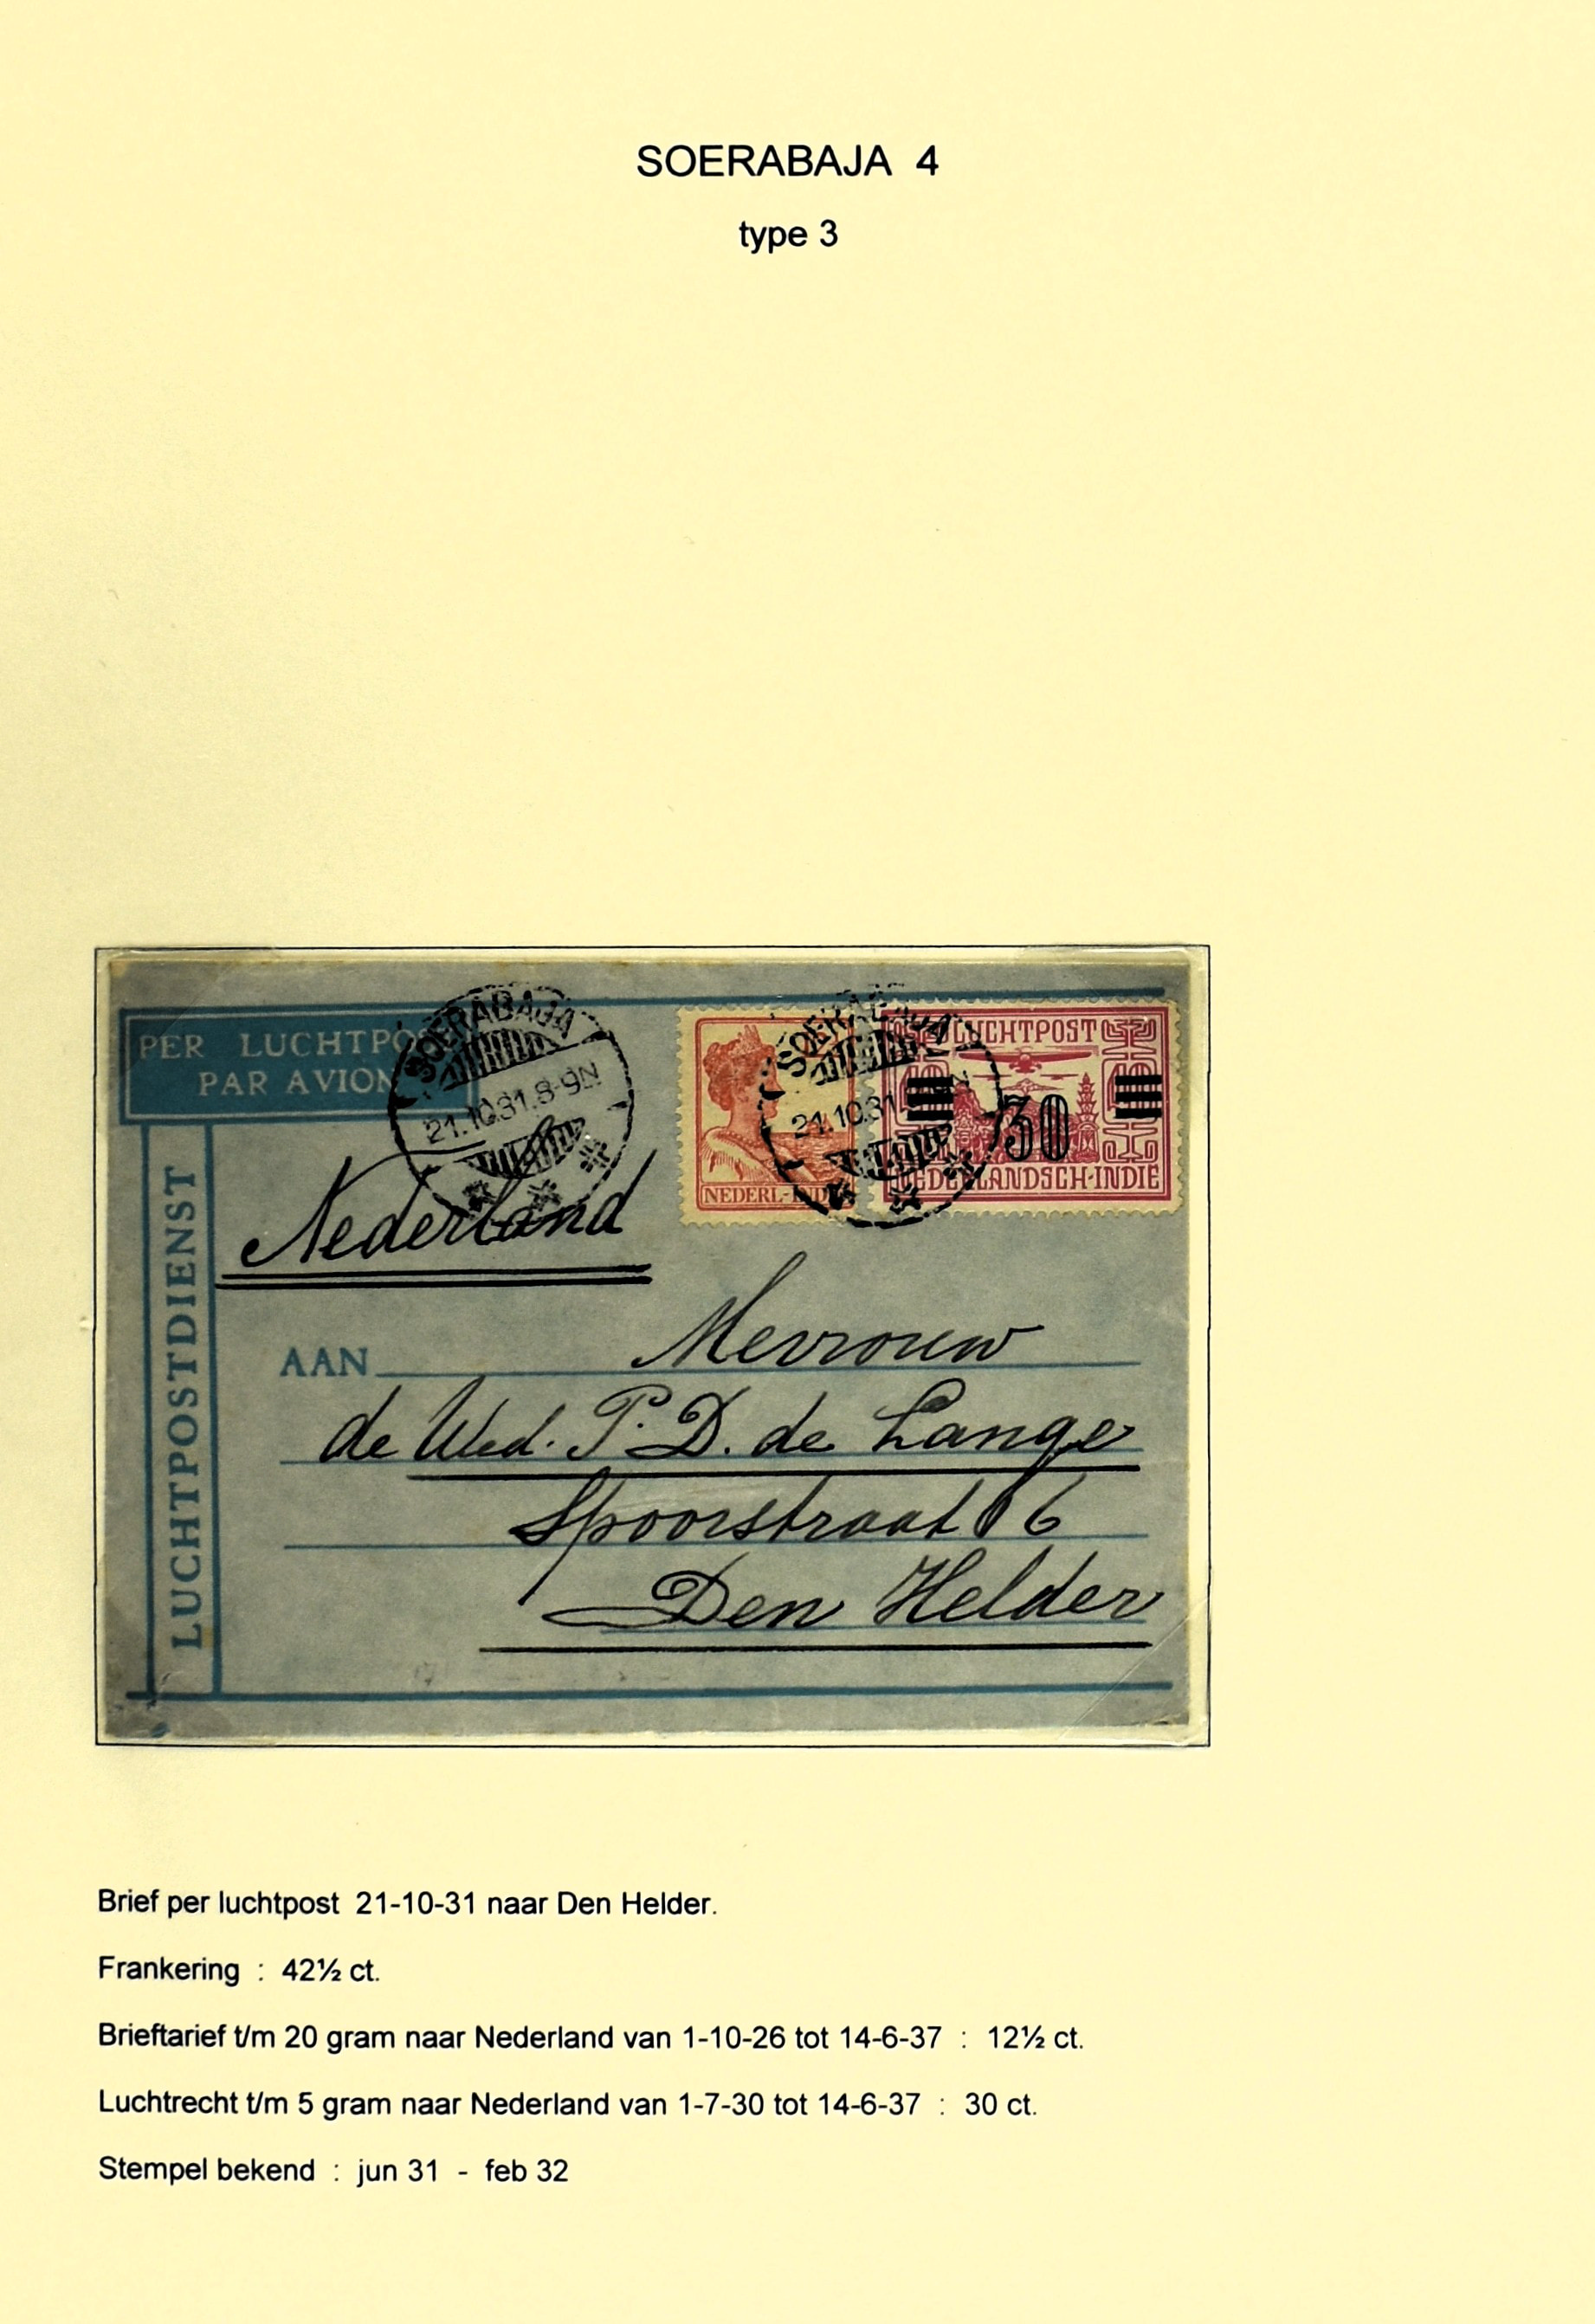 SOERABAJA 4
type 3
PER LUCHTPO
PAR AVION
SOERABAJA
21.10.31.8-9N
SOERABAJA
21.10.31
LUCHTPOST
30
NEDERL-INDIE
NEDERLANDSCH-INDIE
LUCHTPOSTDIENST
Nederland
AAN Mevrouw
de Wed. P. D. de Lange
Spoorstraat 6
Den Helder
Brief per luchtpost 21-10-31 naar Den Helder.
Frankering : 42½ ct.
Brieftarief t/m 20 gram naar Nederland van 1-10-26 tot 14-6-37 : 12½ ct.
Luchtrecht t/m 5 gram naar Nederland van 1-7-30 tot 14-6-37 : 30 ct.
Stempel bekend : jun 31 - feb 32